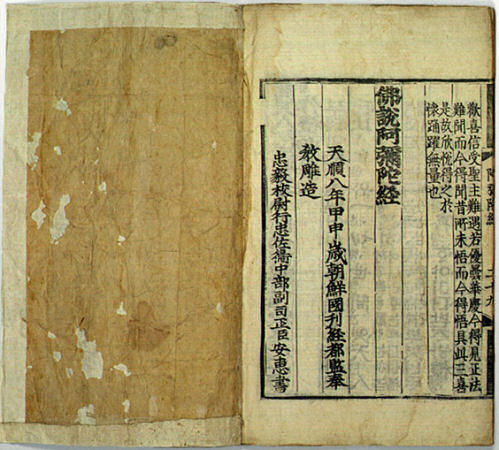 歡喜信受聖主難遇若優曇華慶今得見正法
難聞而今得聞昔所未悟而今得悟具此三喜
是故欣悅得之於
懷踊躍無量也
佛說阿彌陀經
天順八年甲申歲朝鮮國刊經都監奉
敎雕造
忠毅校尉行忠佐衛中部副司正臣安惠書